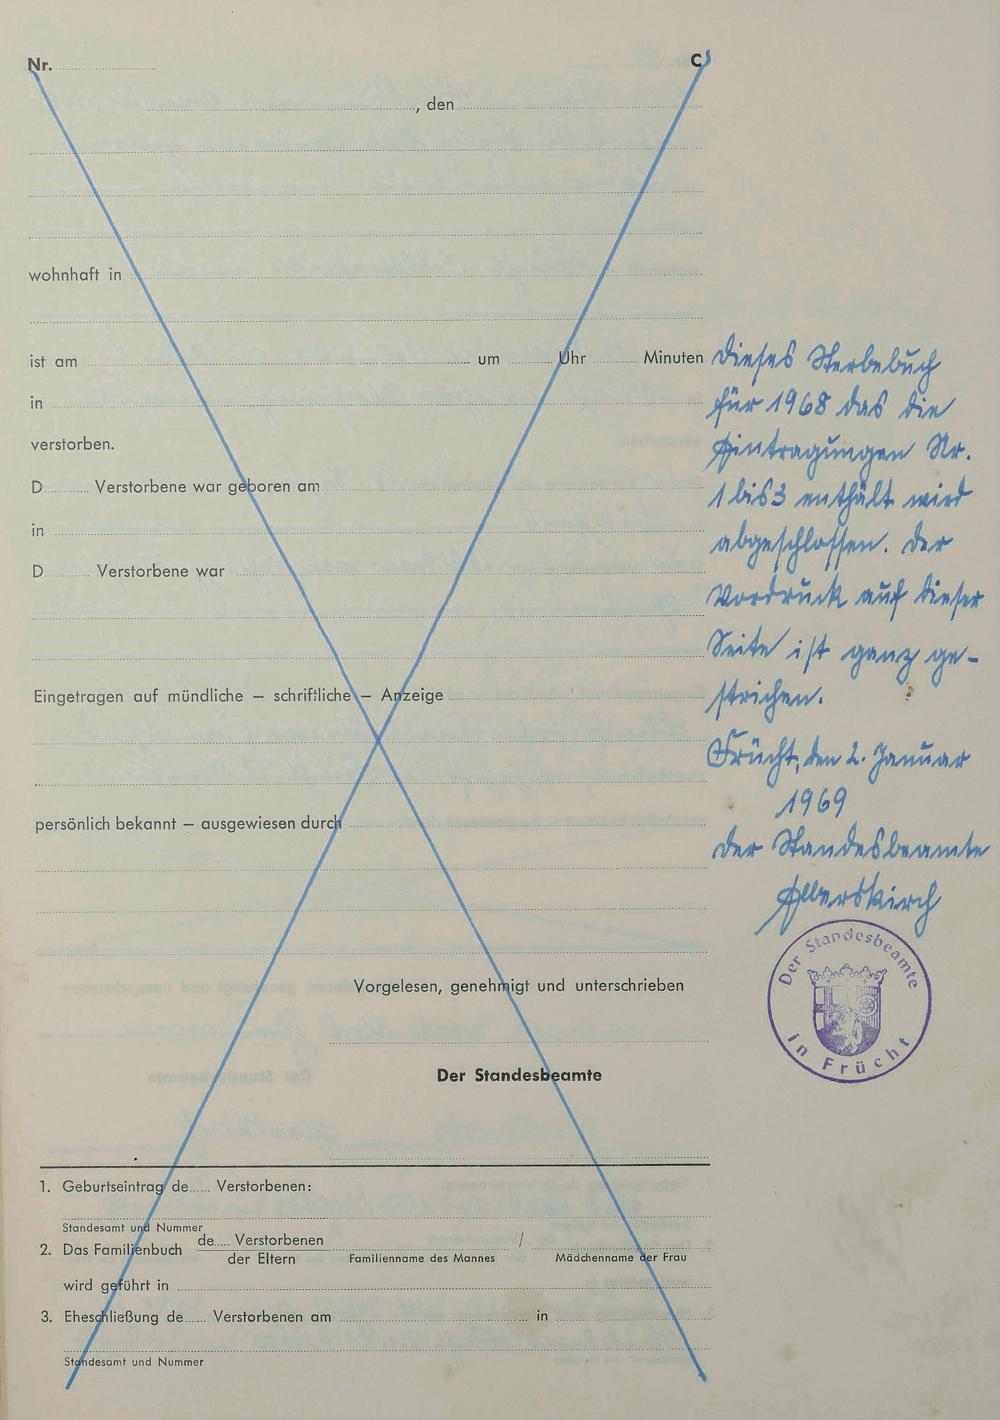 Nr. C
, den
wohnhaft in
ist am um Uhr Minuten
in
verstorben.
D Verstorbene war geboren am
in
D Verstorbene war
Eingetragen auf mündliche – schriftliche – Anzeige
persönlich bekannt – ausgewiesen durch
Vorgelesen, genehmigt und unterschrieben
Der Standesbeamte
1. Geburtseintrag de Verstorbenen:
Standesamt und Nummer
2. Das Familienbuch de Verstorbenen / der Eltern Familienname des Mannes / Mädchenname der Frau
wird geführt in
3. Eheschließung de Verstorbenen am in
Standesamt und Nummer
Dieses Sterbebuch
für 1968 das die
Eintragungen Nr.
1 bis 3 enthält wird
abgeschlossen. Der
Vordruck auf dieser
Seite ist ganz ge-
strichen.
Frücht, den 2. Januar
1969
Der Standesbeamte
Der Standesbeamte
in Frücht